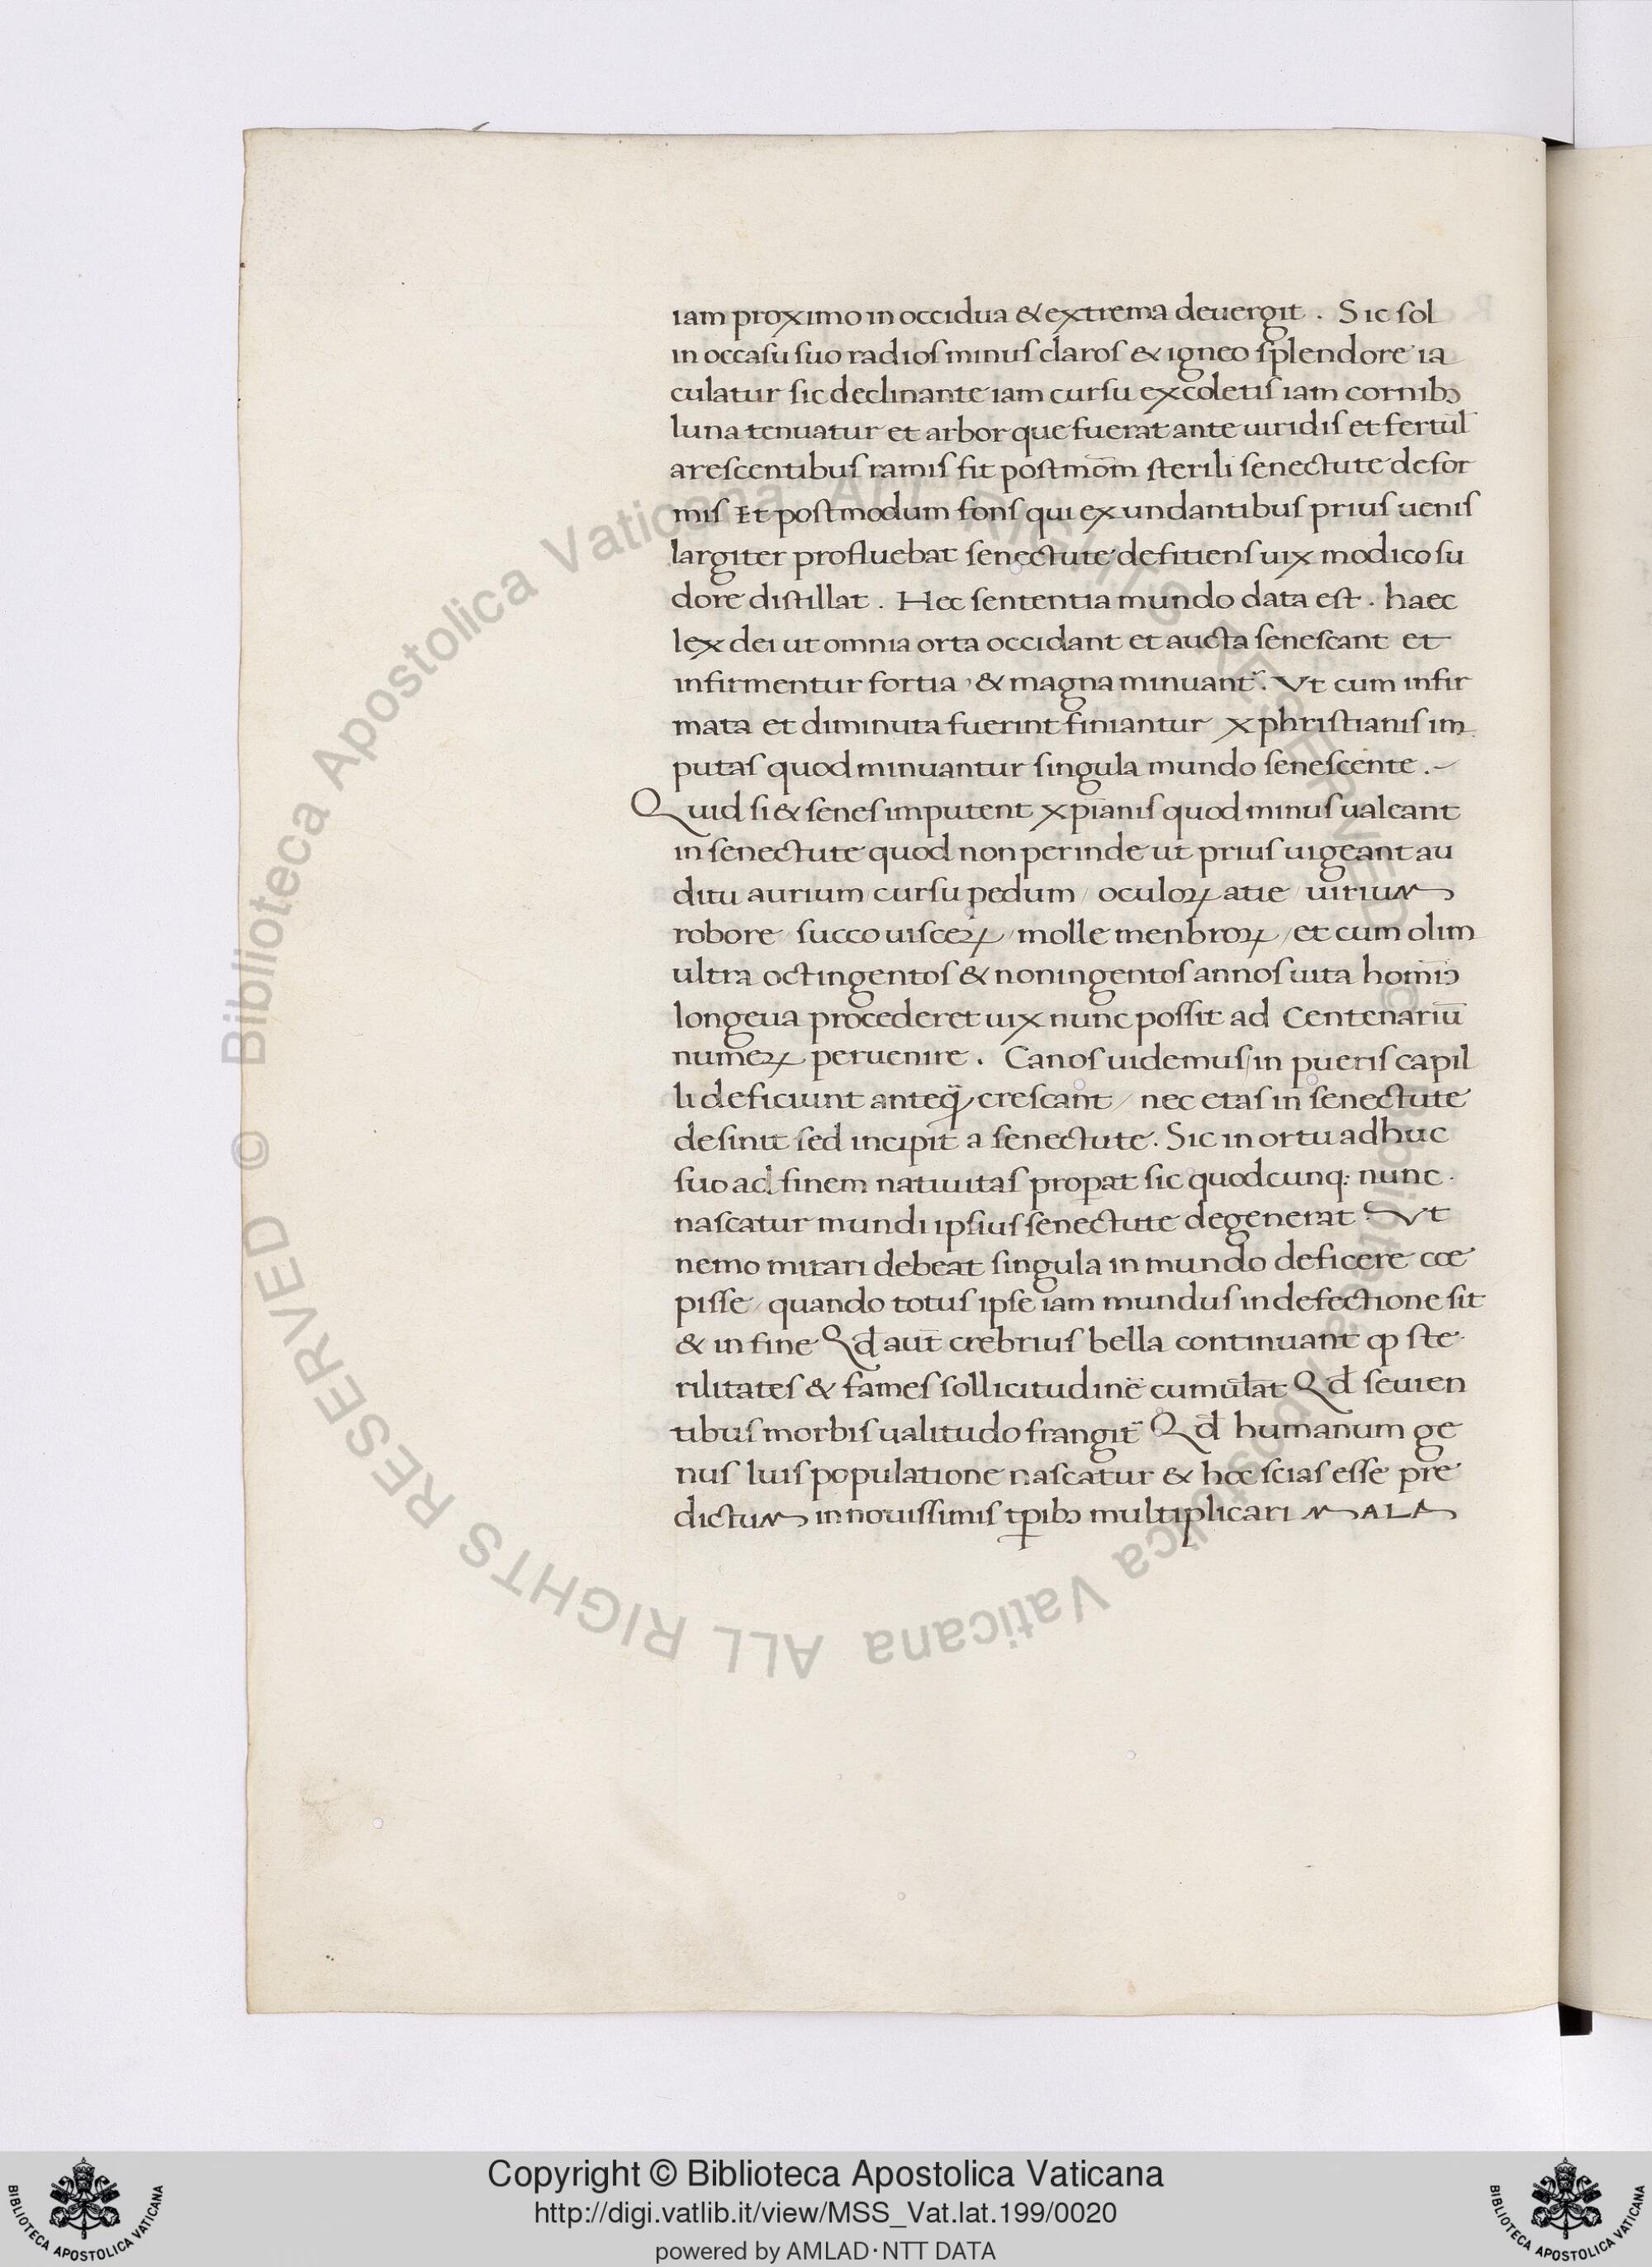 iam proximo in occidua & extrema deuergit . Sic sol
in occasu suo radios minus claros & igneo splendore ia
culatur sic declinante iam cursu excoletis iam cornibꝫ
luna tenuatur et arbor que fuerat ante uiridis et fertiɫ
arescentibus ramis fit postmōm sterili senectute defor
mis Et postmodum fons qui exundantibus prius uenis
largiter profluebat senectute defitiens uix modico su
dore distillat . Hec sententia mundo data est . haec
lex dei ut omnia orta occidant et aucta senescant et
infirmentur fortia , & magna minuant᷑ . Vt cum infir
mata et diminuta fuerint finiantur xphristianis im
putas quod minuantur singula mundo senescente .~
Quid si & senes imputent xp̄ianis quod minus ualeant
in senectute quod non perinde ut prius uigeant au
ditu aurium / cursu pedum / oculoꝝ atie / uirium
robore / succo uisceꝝ / molle menbroꝝ / et cum olim
ultra octingentos & noningentos annos uita homīꝫ
longeua procederet uix nunc possit ad Centenariū
numeꝝ peruenire . Canos uidemus / in pueris capil
li deficiunt anteq̈ crescant / nec etas in senectute
desinit sed incipit a senectute . Sic in ortu adhuc
suo ad finem natiuitas proꝑat sic quodcunq: nunc .
nascatur mundi ipsius senectute degenerat . Vt
nemo mirari debeat singula in mundo deficere cœ
pisse / quando totus ipse iam mundus in defectione sit
& in fine Qd̄ aut̄ crebrius bella continuant ꝙ ste
rilitates & fames sollicitudinē cumul̄at Qd̄ seuien
tibus morbis ualitudo frangit᷑ Qd̄ humanum ge
nus luis populatione nascatur & hœ scias esse pre
dictum in nouissimis tꝑibꝫ multiplicari MALA
© Biblioteca Apostolica Vaticana ALL RIGHTS RESERVED © Biblioteca Apostolica Vaticana ALL RIGHTS RESERVED
BIBLIOTECA APOSTOLICA VATICANA
Copyright © Biblioteca Apostolica Vaticana
http://digi.vatlib.it/view/MSS_Vat.lat.199/0020
powered by AMLAD·NTT DATA
BIBLIOTECA APOSTOLICA VATICANA